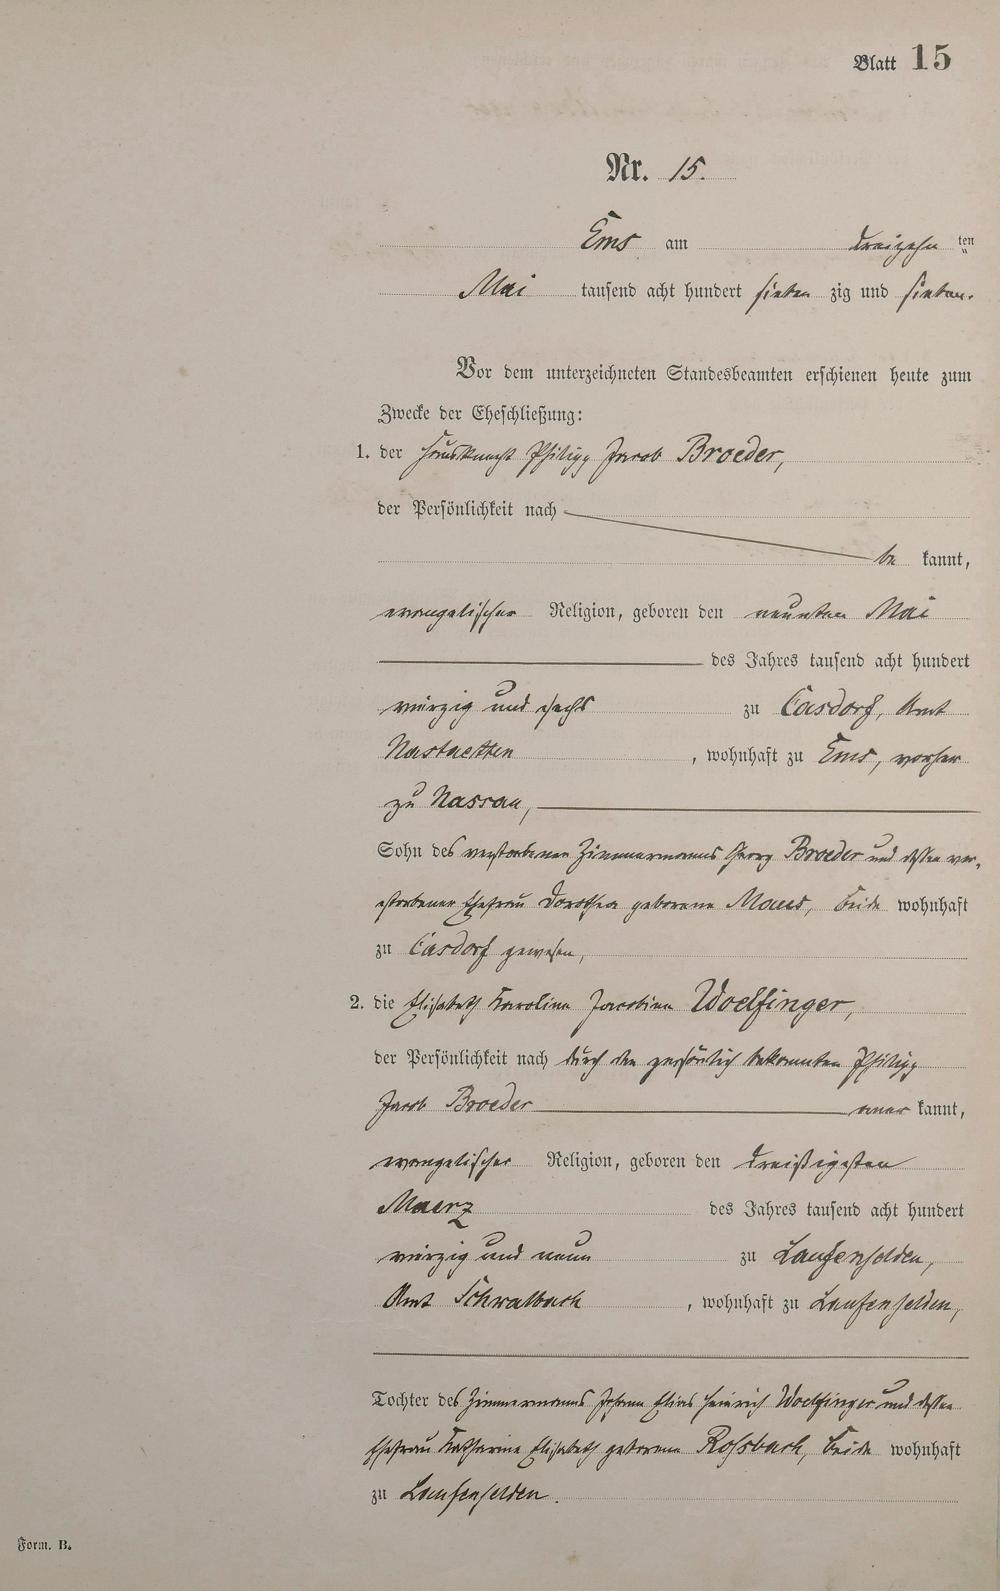 Blatt 15
Nr. 15.
Ems am dreizehn ten
Mai tausend acht hundert sieben zig und sieben.
Vor dem unterzeichneten Standesbeamten erschienen heute zum
Zwecke der Eheschließung:
1. der Hausknecht Philipp Jacob Broeder,
der Persönlichkeit nach
be kannt,
evangelischer Religion, geboren den neunten Mai
des Jahres tausend acht hundert
vierzig und sechs zu Casdorf, Amt
Nastaetten, wohnhaft zu Ems, vorher
zu Nassau,
Sohn des verstorbenen Zimmermanns Georg Broeder und dessen ver-
storbener Ehefrau Dorothea geborene Maus, beide wohnhaft
zu Casdorf gewesen,
2. die Elisabeth Karoline Jacobine Woelfinger,
der Persönlichkeit nach durch den persönlich bekannten Philipp
Jacob Broeder aner kannt,
evangelischer Religion, geboren den dreißigsten
Maerz des Jahres tausend acht hundert
vierzig und neun zu Laufenselden,
Amt Schwalbach, wohnhaft zu Laufenselden,
Tochter des Zimmermanns Johann Elias Heinrich Woelfinger und dessen
Ehefrau Katharine Elisabeth geborene Roßbach, beide wohnhaft
zu Laufenselden.
Form. B.